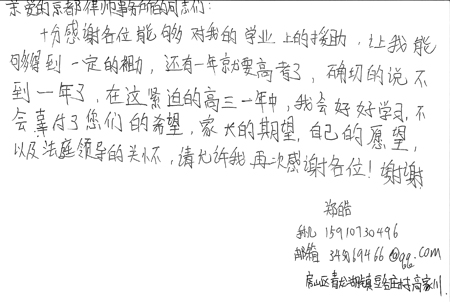 亲爱的京都律师事务所的同志们:
十分感谢各位能够对我的学业上的援助,让我能
够得到一定的帮助,还有一年就要高考了,确切的说不
到一年了,在这紧迫的高三一年中,我会好好学习,不
会辜付了您们的希望,家人的期望,自己的愿望,
以及法庭领导的关怀,请允许我再次感谢各位!谢谢
郑皓
手机 15910730496
邮箱 @qq.com
房山区青龙湖镇 村高家川